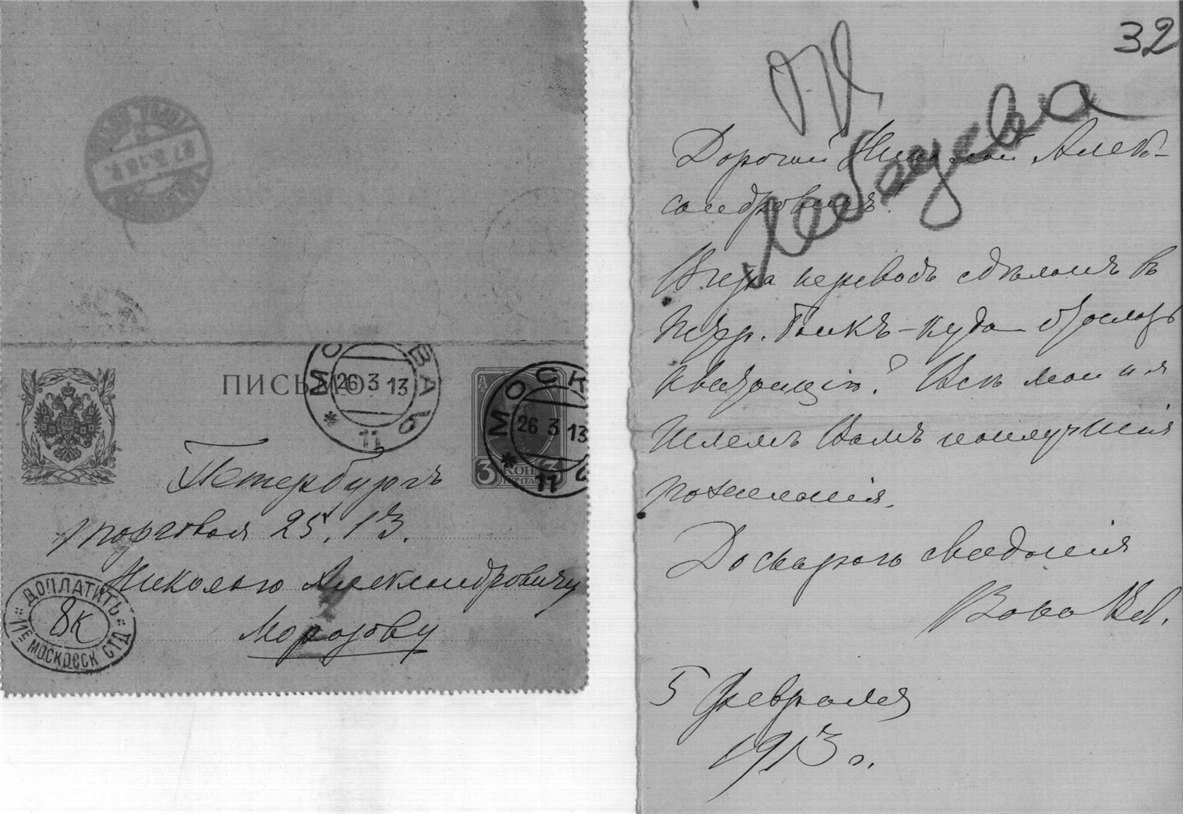 ПИСЬМО
МОСКВА 6
26 3 13
11
МОСК
26 3 13
11 6
3 КОП 3
Петербургъ
Торговая 25. 13.
Николаю Александровичу
Морозову
ДОПЛАТИТЬ
8к
МОСКОВСК
32
Лебедева
Дорогой Николай Алек-
сандровичъ!
Вчера переводъ сдѣланъ в
Банкъ - куда
квитанцію? Всѣ мои и я
шлемъ Вамъ наилучшія
пожеланія.
До скораго свиданія
5 Февраля
1913 г.